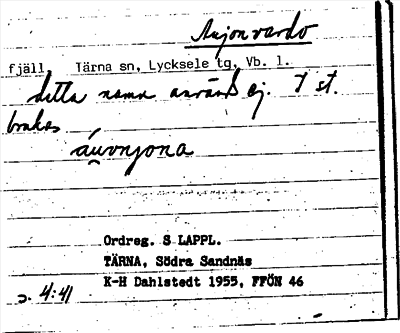 Aujonvardo
fjäll Tärna sn, Lycksele tg, Vb. l.
detta namn användes ej. I st.
brukas
áuvnjona
Ordreg. S LAPPL.
TÄRNA, Södra Sandnäs
K-H Dahlstedt 1955, FFÖN 46
s. 4:41